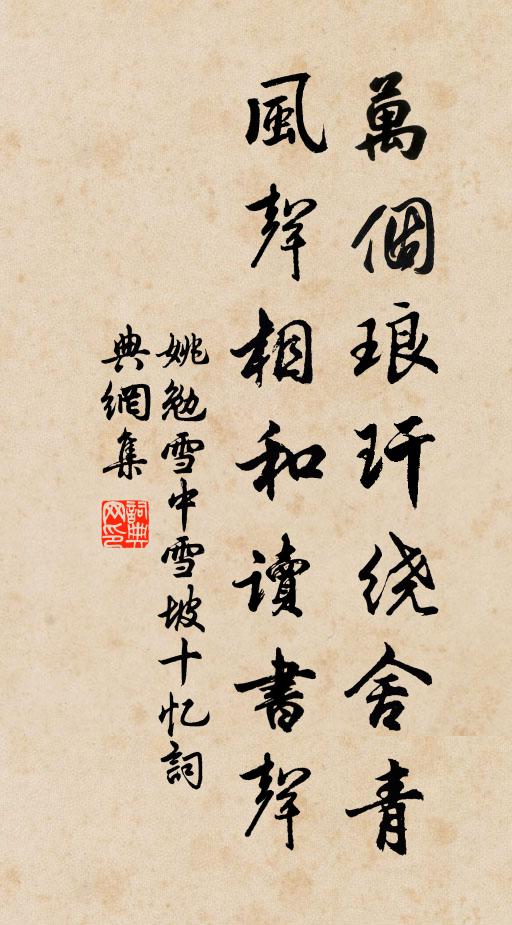 萬個琅玕绕舍青
風聲相和读書聲
姚勉雪中雪坡十忆詞
典網集
詞典网印